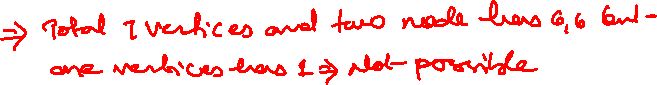 ⇒ Total 7 vertices and two node has 6,6 but
one vertices has 1 ⇒ Not possible